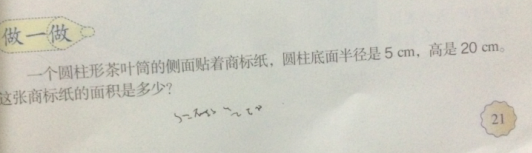 做一做
一个圆柱形茶叶筒的侧面贴着商标纸，圆柱底面半径是5 cm，高是20 cm。
这张商标纸的面积是多少？
21